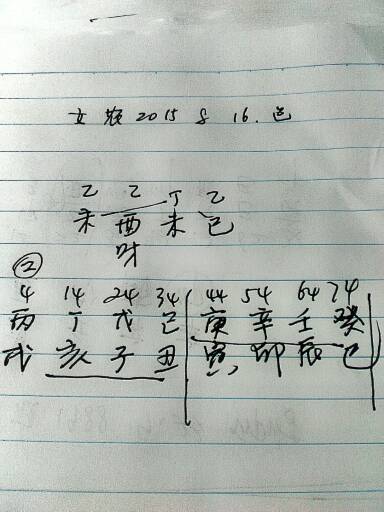 女 农 2015 8 16. 巳
乙 乙 丁 乙
未 酉 未 巳
②
4 14 24 34 44 54 64 74
丙 丁 戊 己 庚 辛 壬 癸
戌 亥 子 丑 寅 卯 辰 巳